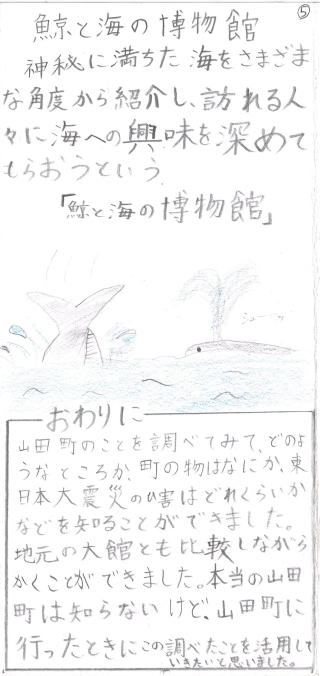 ⑤
鯨と海の博物館
神秘に満ちた海をさまざま
な角度から紹介し、訪れる人
々に海への興味を深めて
もらおうという
「鯨と海の博物館」
シューッ
おわりに
山田町のことを調べてみて、どのよ
うなところか、町の物はなにか、東
日本大震災のひ害はどれくらいか
などを知ることができました。
地元の大館とも比較しながら
かくことができました。本当の山田
町は知らないけど、山田町に
行ったときにこの調べたことを活用して
いきたいと思いました。